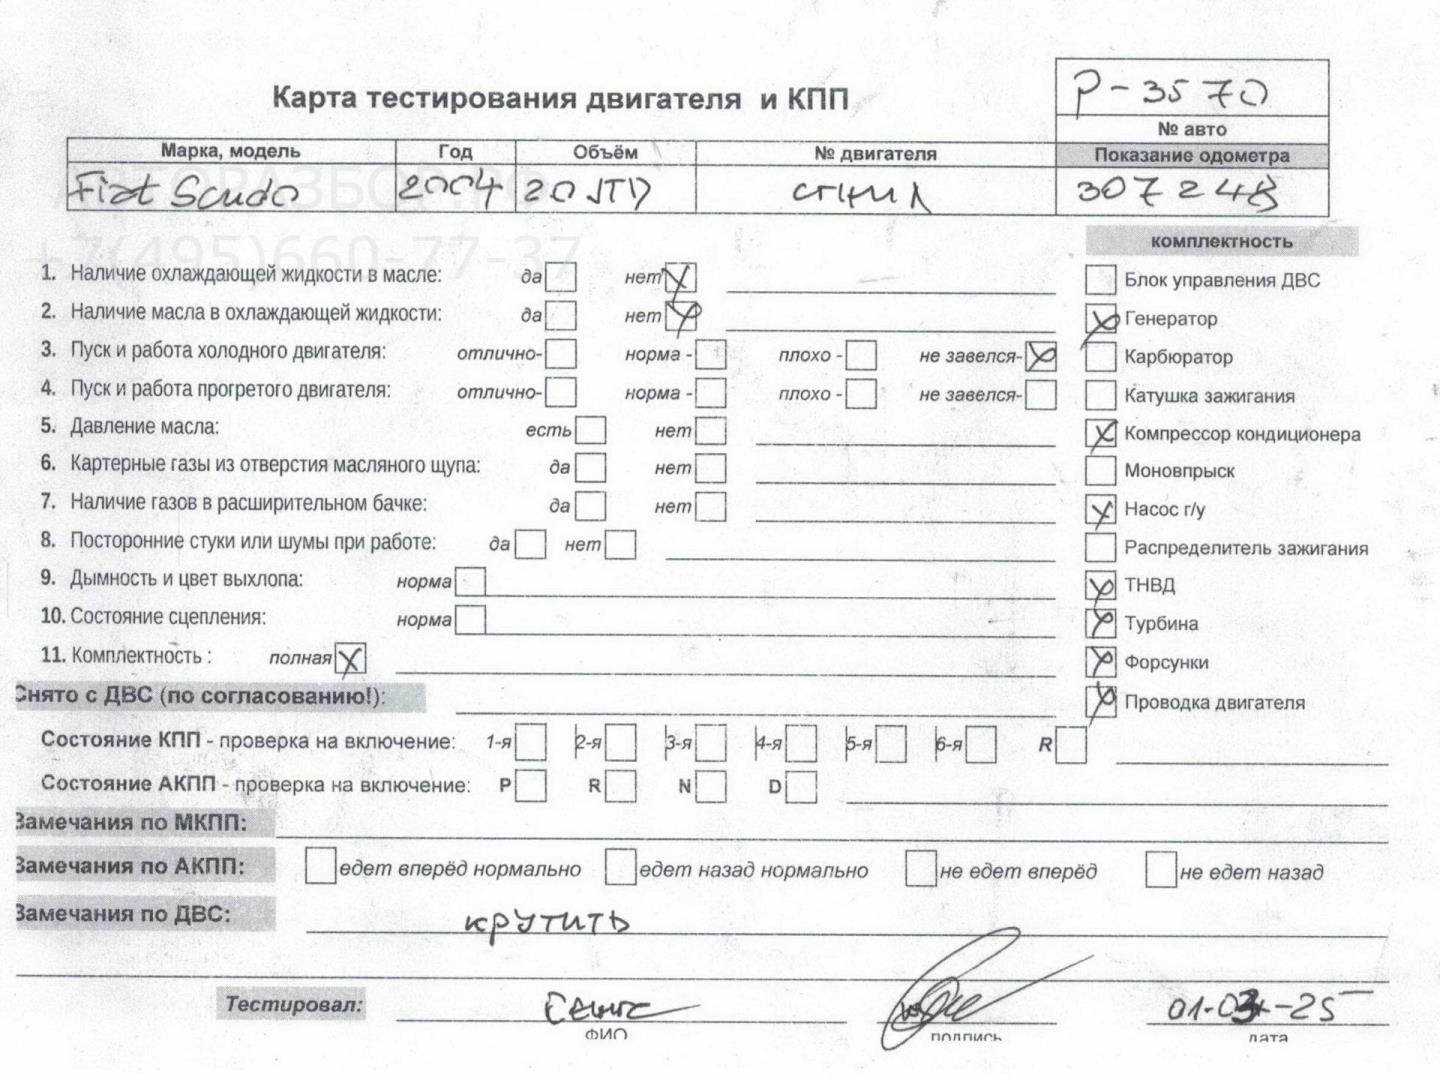 Р-3570
Карта тестирования двигателя и КПП
№ авто
Марка, модель Год Объём № двигателя Показание одометра
Fiat Scudo 2004 2.0 JTD сгнил 307248
+7(495)660-77-37
комплектность
1. Наличие охлаждающей жидкости в масле: да нет
Блок управления ДВС
2. Наличие масла в охлаждающей жидкости: да нет
Генератор
3. Пуск и работа холодного двигателя: отлично- норма - плохо - не завелся-
Карбюратор
4. Пуск и работа прогретого двигателя: отлично- норма - плохо - не завелся-
Катушка зажигания
5. Давление масла: есть нет
Компрессор кондиционера
6. Картерные газы из отверстия масляного щупа: да нет
Моновпрыск
7. Наличие газов в расширительном бачке: да нет
Насос г/у
8. Посторонние стуки или шумы при работе: да нет
Распределитель зажигания
9. Дымность и цвет выхлопа: норма
ТНВД
10. Состояние сцепления: норма
Турбина
11. Комплектность : полная
Форсунки
Снято с ДВС (по согласованию!):
Проводка двигателя
Состояние КПП - проверка на включение: 1-я 2-я 3-я 4-я 5-я 6-я R
Состояние АКПП - проверка на включение: P R N D
Замечания по МКПП:
Замечания по АКПП: едет вперёд нормально едет назад нормально не едет вперёд не едет назад
Замечания по ДВС: крутить
Тестировал:
ФИО подпись дата